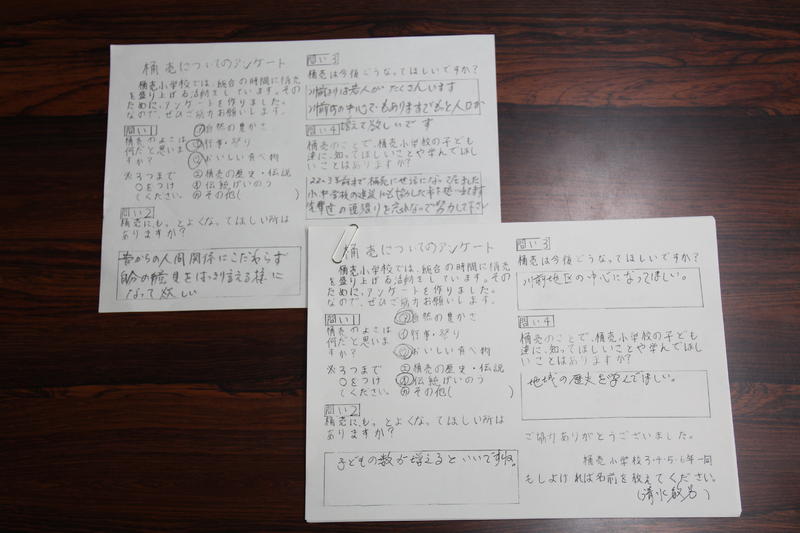 桶売についてのアンケート
桶売小学校では、総合の時間に桶売
を盛り上げる活動をしています。その
ためにアンケートを作りました。
なので、ぜひご協力お願いします。
問い1
桶売のよこは
何だと思いま
すか?
※3つまで
○をつけ
てください。
①自然の豊かさ
②行事・祭り
③おいしい食べ物
④桶売の歴史・伝説
⑤伝統げいのう
⑥その他( )
問い2
桶売にもっとよくなってほしい所は
ありますか?
昔からの人間関係にこだわらず
自分の意見をはっきり言える様に
なって欲しい
問い3
桶売は今後どうなってほしいですか?
川前町は老人が たくさんいます
川前町の中心でもありますもっと人口が
増えて欲しいです
問い4
桶売のことで、桶売小学校の子ども
達に、知ってほしいことや学んでほし
いことはありますか?
小中学校の建設に
の頑張りを忘れないで努力して下さい
桶売についてのアンケート
桶売小学校では、総合の時間に桶売
を盛り上げる活動をしています。その
ためにアンケートを作りました。
なので、ぜひご協力お願いします。
問い1
桶売のよこは
何だと思いま
すか?
※3つまで
○をつけ
てください。
①自然の豊かさ
②行事・祭り
③おいしい食べ物
④桶売の歴史・伝説
⑤伝統げいのう
⑥その他( )
問い2
桶売に、もっとよくなってほしい所は
ありますか?
子どもの数が増えるといいですね。
問い3
桶売は今後どうなってほしいですか?
川前地区の中心になってほしい。
問い4
桶売のことで、桶売小学校の子ども
達に、知ってほしいことや学んでほし
いことはありますか?
地域の歴史を学んでほしい。
ご協力ありがとうございました。
桶売小学校3・4・5・6年一同
もしよければ名前を教えてください。
(清水敏男)